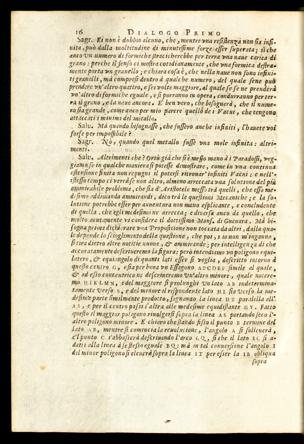 16 DIALOGO PRIMO
Sagr. Ei non è dubbio alcuno, che, mentre una resistenza non sia infi-
nita, può dalla moltitudine di minutissime forze esser superata; sì che
anco un numero di formiche stracicherebbe per terra una nave carica di
grano: perche il senso ci mostra cotidianamente, che una formica destra-
mente porta un granello; e chiara cosa è, che nella nave non sono infini-
ti granelli, ma compresi dentro à qualche numero, del quale se ne può
prendere un' altro quattro, e sei volte maggiore, al quale se se ne prenderà
un' altro di formiche eguale, e si porranno in opera, condurranno per ter-
ra il grano, e la nave ancora. È ben vero, che bisognerà, che il nume-
ro sia grande, come anco per mio parere quello de i Vacui, che tengono
attaccati i minimi del metallo.
Salv. Mà quando bisognasse, che fussero anche infiniti, l'havete voi
forse per impossibile?
Sagr. Nò, quando quel metallo fusse una mole infinita: altri-
menti.
Salv. Altrimenti che? Orsù già che si è messo mano à i Paradossi, veg-
giamo se in qualche maniera si potesse dimostrare, come in una continua
estensione finita non repugni il potersi ritrovar' infiniti Vacui; e nell'i-
stesso tempo ci verrà, se non altro, almeno arrecata una soluzione del più
ammirabile problema, che sia da Aristotele messo trà quelli, che esso me-
desimo addimanda ammirandi, dico trà le questioni Mecaniche; e la so-
luzione potrebbe esser per avventura non meno esplicante, e concludente
di quella, che egli medesimo ne arreca; e diversa anco da quello, che
molto acutamente vi considera il dottissimo Monsig. di Guevara. Mà bi-
sogna prima dichiarare una Proposizione non toccata da altri, dalla qua-
le depende lo scioglimento della questione, che poi, s'io non m'inganno,
si tira dietro altre notizie nuove, & ammirande; per intelligenza di che
accuratamente descriveremo la figura; però intendiamo un poligono equi-
latero, & equiangolo di quanti lati esser si voglia, descritto intorno à
questo centro G, e sia per hora un Essagono ABCDEF; simile al quale,
& ad esso concentrico ne descriveremo un' altro minore, quale notere-
mo HIKLMN, e del maggiore si prolunghi un lato AB indeterminata-
mente verso S, e del minore il rispondente lato HI sia verso la me-
desima parte similmente prodotto, segnando la linea HT parallela all'
AS, e per il centro passi l'altra alle medesime equidistante GV. Fatto
questo intendasi il maggior poligono rivolgersi sopra la linea AS portando seco l'al-
tro poligono minore. È chiaro che stando fisso il punto B termine del
lato AB, mentre si comincia la revoluzione, l'angolo A si solleverà,
e 'l punto C s'abbasserà descrivendo l'arco CQ, sì che il lato BC si a-
datti alla linea à se stesso eguale BQ: mà in tal conversione l'angolo I
del minor poligono si eleverà sopra la linea IT per esser la IB obliqua
sopra